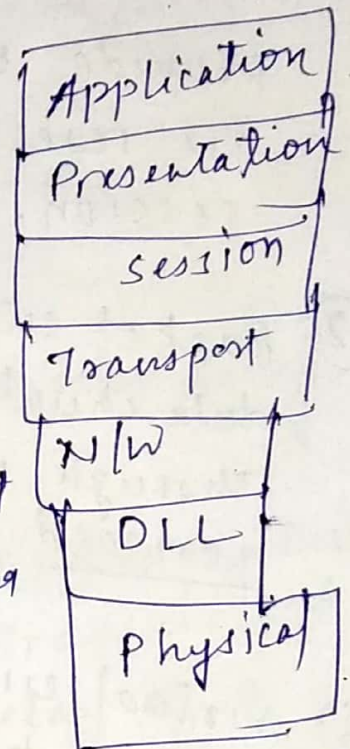 Application
Presentation
Session
Transport
N/W
DLL
Physical